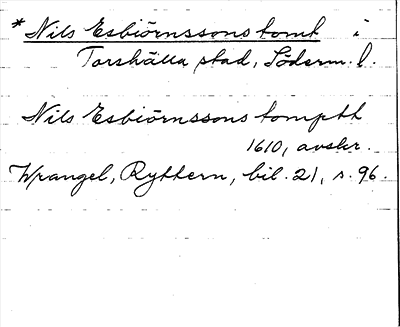 * Nils Esbiörnssons tomt i
Torshälla stad, Söderm. l.
Nils Esbiörnssons tompth
1610, avskr.
Wrangel, Ryttern, bil. 21, s. 96.